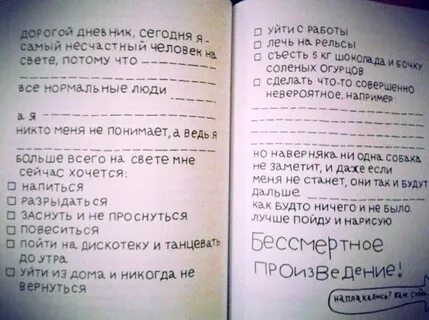 дорогой дневник, сегодня я-
самый несчастный человек на
свете, потому что
все нормальные люди
а я
никто меня не понимает, а ведь я
больше всего на свете мне
сейчас хочется:
напиться
разрыдаться
заснуть и не проснуться
повеситься
пойти на дискотеку и танцевать
до утра
уйти из дома и никогда не
вернуться
уйти с работы
лечь на рельсы
съесть 5 кг шоколада и бочку
соленых огурцов
сделать что-то совершенно
невероятное, например:
но наверняка ни одна собака
не заметит, и даже если
меня не станет, они так и будут
дальше
как будто ничего и не было.
лучше пойду и нарисую
Бессмертное
произведение!
наплакались? вам сюда